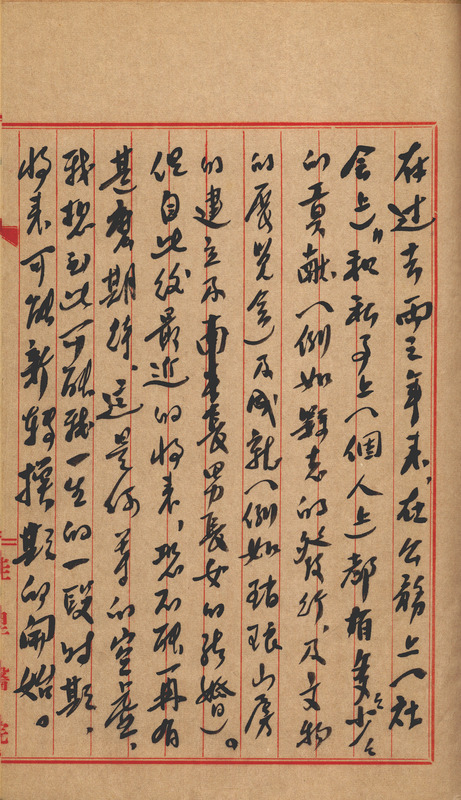 在过去两三年来,在公務上(社
会上)和私事上(個人上)都有多少
的貢献(例如雜志的發行,及文物
的展览会)及成就(例如 山房
的建立及 長男長女的結婚)。
但自此後最近的将来,恐不能再有
甚麽期待。這是何等的空虚,
我想到此可能我一生的一段时期,
将来可能新轉换期的開始。